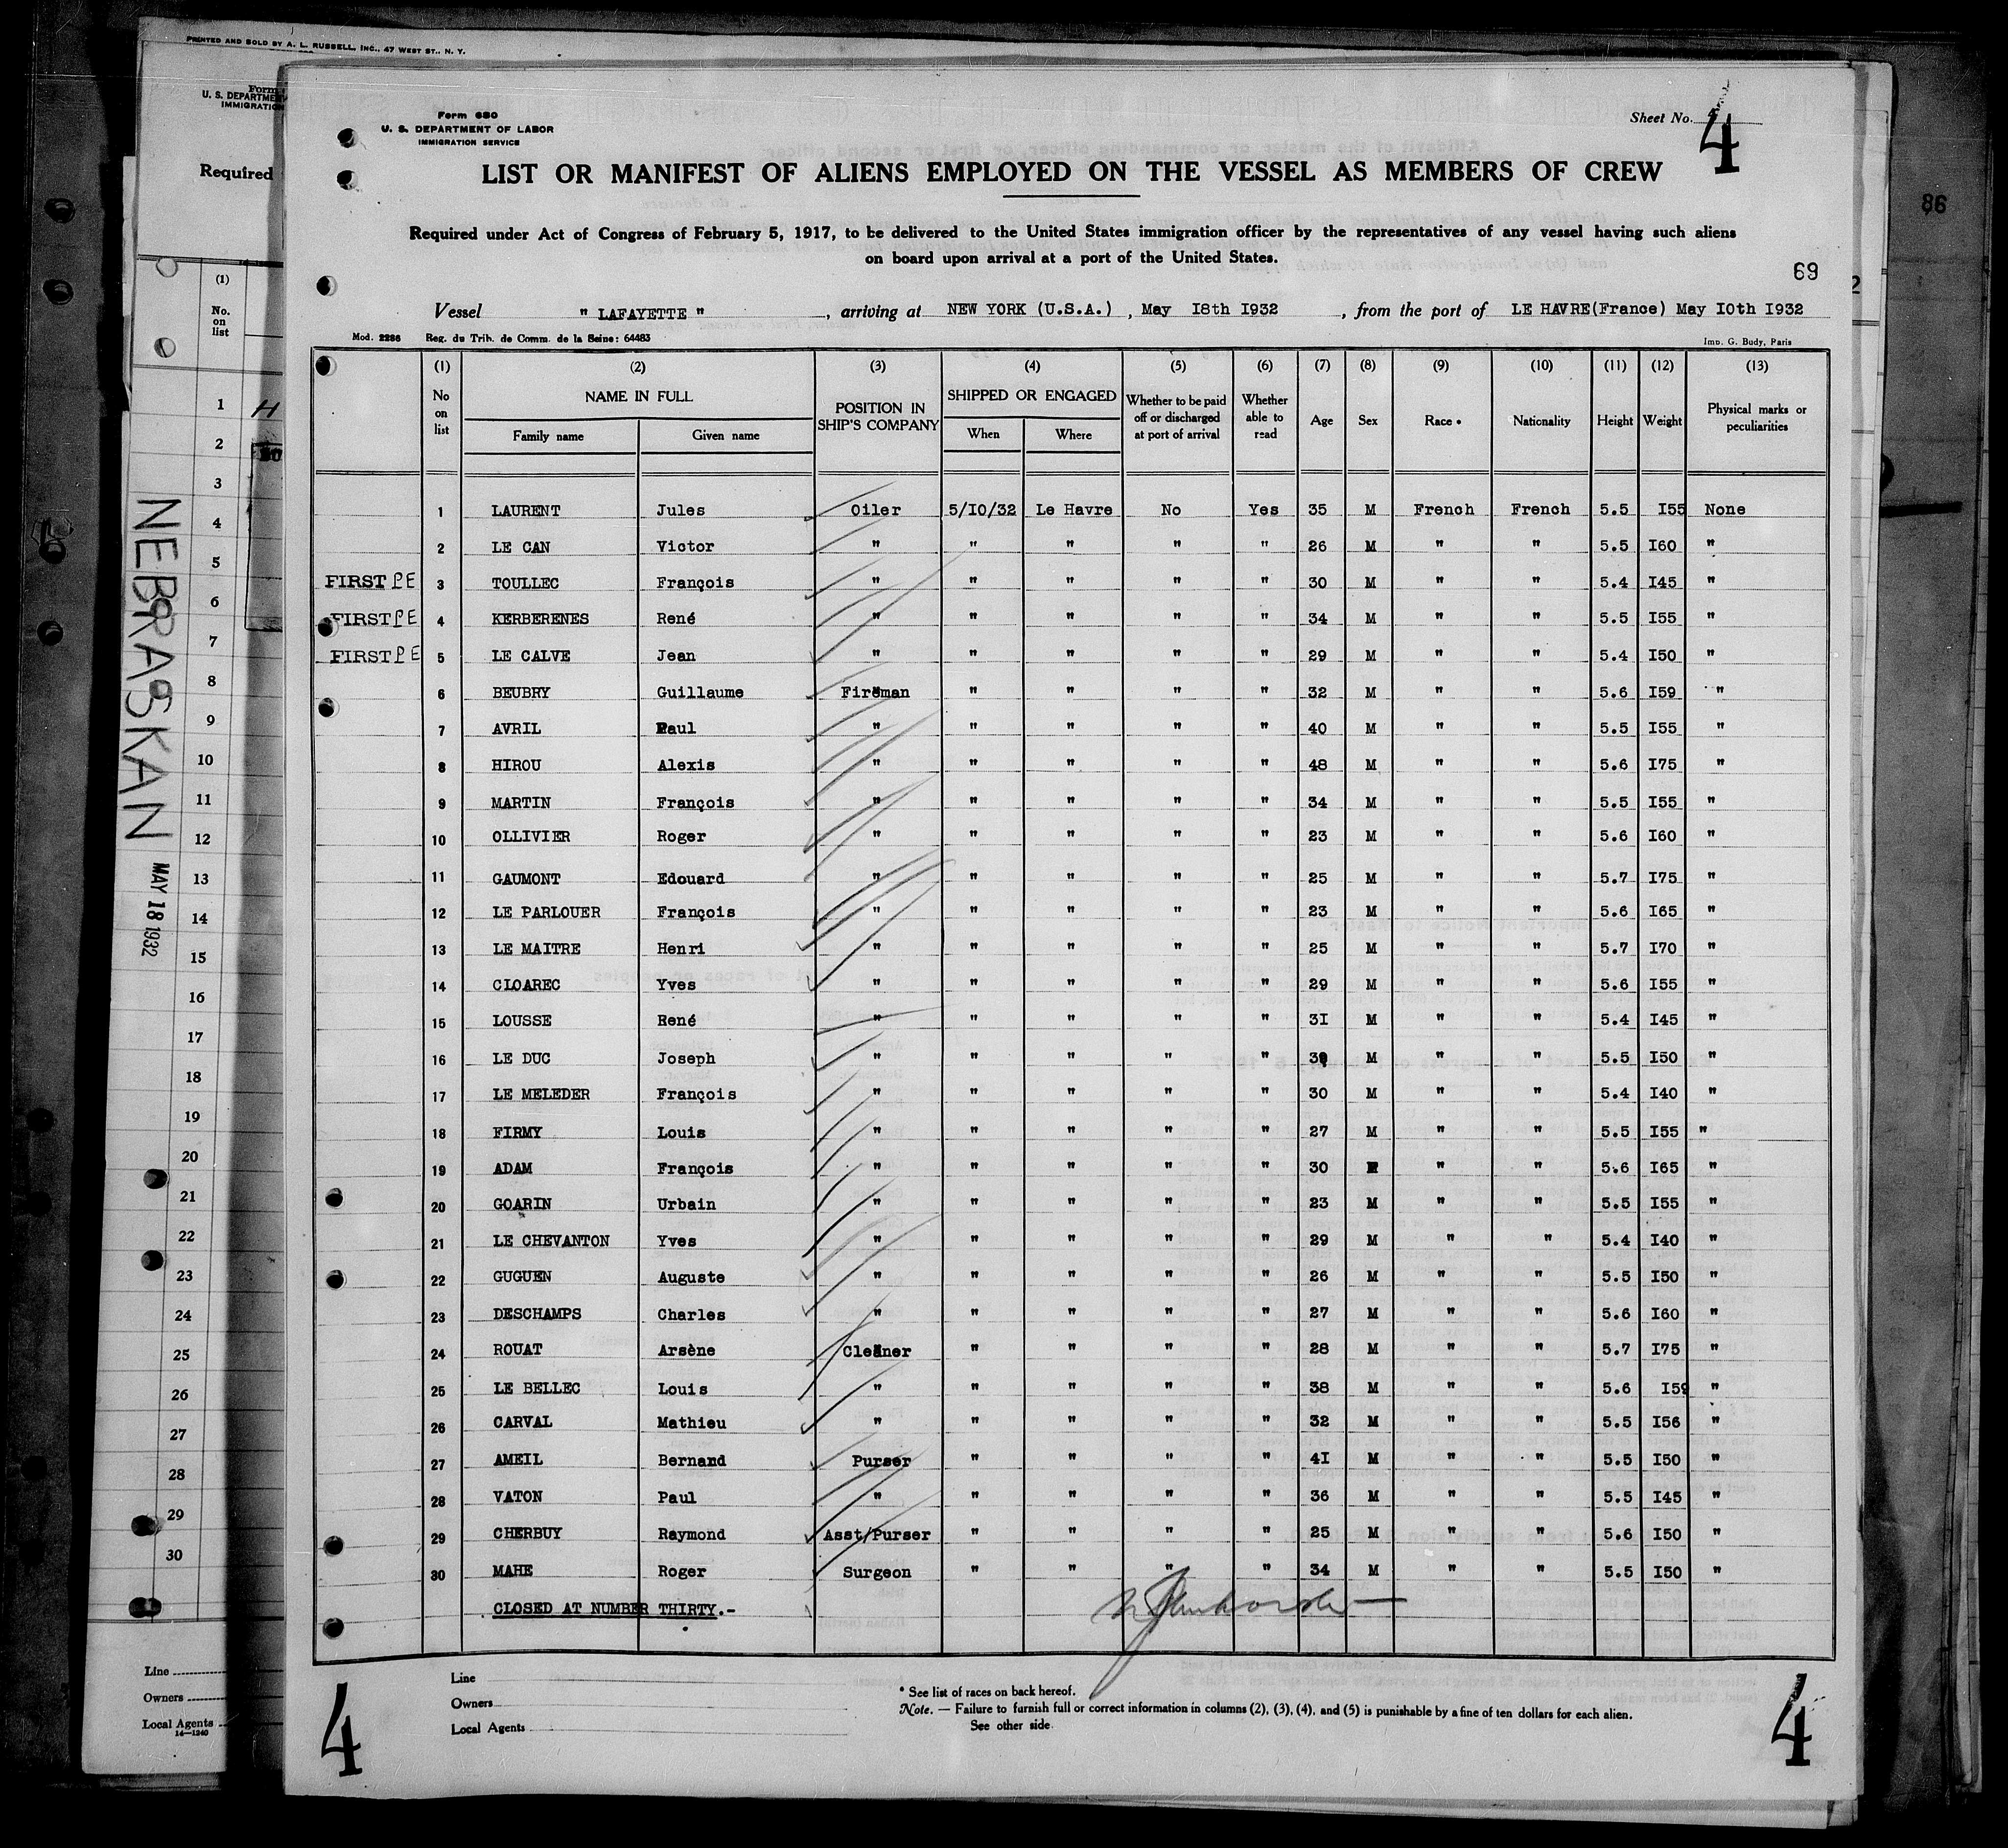 PRINTED AND SOLD BY A. L. RUSSELL, INC., 47 WEST ST., N. Y.
Form
U. S. DEPARTME
IMMIGRATIO
Required
(1)
No.
on
list
1 H
2
3
4
5
6
7
8
9
10
11
12
13
14
15
16
17
18
19
20
21
22
23
24
25
26
27
28
29
30
NEBRASKAN
MAY 18 1932
Line
Owners
Local Agents
14—1240
86
2
Form 680
U. S. DEPARTMENT OF LABOR
IMMIGRATION SERVICE
Sheet No. 4
LIST OR MANIFEST OF ALIENS EMPLOYED ON THE VESSEL AS MEMBERS OF CREW
Required under Act of Congress of February 5, 1917, to be delivered to the United States immigration officer by the representatives of any vessel having such aliens
on board upon arrival at a port of the United States.
69
Vessel " LAFAYETTE " , arriving at NEW YORK (U.S.A.) , May I8th I932 , from the port of LE HAVRE(France) May I0th I932
Mod. 2286 Reg. du Trib. de Comm. de la Seine: 64483 Imp. G. Budy, Paris
(1) (2) (3) (4) (5) (6) (7) (8) (9) (10) (11) (12) (13)
No on list NAME IN FULL Family name Given name POSITION IN SHIP'S COMPANY SHIPPED OR ENGAGED When Where Whether to be paid off or discharged at port of arrival Whether able to read Age Sex Race * Nationality Height Weight Physical marks or peculiarities
1 LAURENT Jules Oiler 5/I0/32 Le Havre No Yes 35 M French French 5.5 I55 None
2 LE CAN Victor " " " " " 26 M " " 5.5 I60 "
FIRST PE 3 TOULLEC François " " " " " 30 M " " 5.4 I45 "
FIRST PE 4 KERBERENES René " " " " " 34 M " " 5.5 I55 "
FIRST PE 5 LE CALVE Jean " " " " " 29 M " " 5.4 I50 "
6 BEUBRY Guillaume Fireman " " " " 32 M " " 5.6 I59 "
7 AVRIL Paul " " " " " 40 M " " 5.5 I55 "
8 HIROU Alexis " " " " " 48 M " " 5.6 I75 "
9 MARTIN François " " " " " 34 M " " 5.5 I55 "
10 OLLIVIER Roger " " " " " 23 M " " 5.6 I60 "
11 GAUMONT Edouard " " " " " 25 M " " 5.7 I75 "
12 LE PARLOUER François " " " " " 23 M " " 5.6 I65 "
13 LE MAITRE Henri " " " " " 25 M " " 5.7 I70 "
14 CLOAREC Yves " " " " " 29 M " " 5.6 I55 "
15 LOUSSE René " " " " " 3I M " " 5.4 I45 "
16 LE DUC Joseph " " " " " M " " 5.5 I50 "
17 LE MELEDER François " " " " " 30 M " " 5.4 I40 "
18 FIRMY Louis " " " " " 27 M " " 5.5 I55 "
19 ADAM François " " " " " 30 M " " 5.6 I65 "
20 GOARIN Urbain " " " " " 23 M " " 5.5 I55 "
21 LE CHEVANTON Yves " " " " " 29 M " " 5.4 I40 "
22 GUGUEN Auguste " " " " " 26 M " " 5.5 I50 "
23 DESCHAMPS Charles " " " " " 27 M " " 5.6 I60 "
24 ROUAT Arsène Cleaner " " " " 28 M " " 5.7 I75 "
25 LE BELLEC Louis " " " " " 38 M " " 5.6 I59 "
26 CARVAL Mathieu " " " " " 32 M " " 5.5 I56 "
27 AMEIL Bernand Purser " " " " 4I M " " 5.5 I50 "
28 VATON Paul " " " " " 36 M " " 5.5 I45 "
29 CHERBUY Raymond Asst/Purser " " " " 25 M " " 5.6 I50 "
30 MAHE Roger Surgeon " " " " 34 M " " 5.5 I50 "
CLOSED AT NUMBER THIRTY.-
Line
Owners
Local Agents
* See list of races on back hereof.
Note. — Failure to furnish full or correct information in columns (2), (3), (4), and (5) is punishable by a fine of ten dollars for each alien.
See other side.
4
4